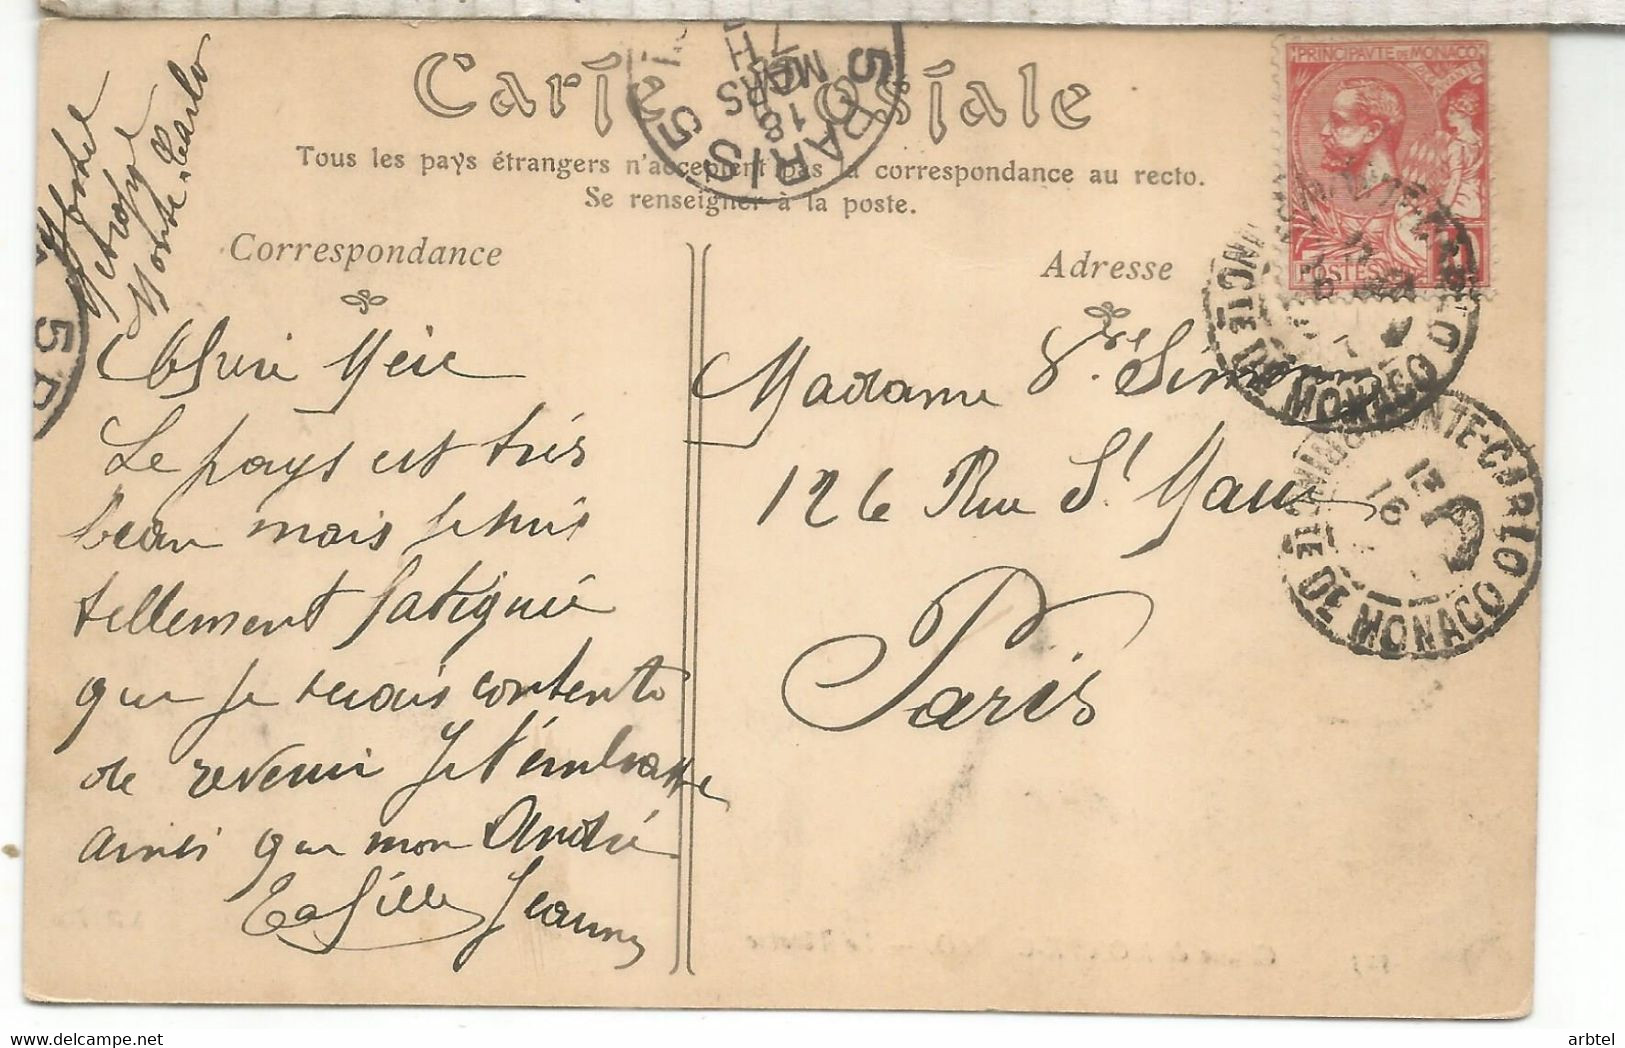 Carte Postale
Tous les pays étrangers n'acceptent pas la correspondance au recto.
Se renseigner à la poste.
Correspondance
Adresse
Hotel
Métropole
Monte-Carlo
Cher Mère
Le pays est très
beau mais je suis
tellement fatiguée
que je serais contente
de revenir Je t'embrasse
ainsi que mon André
Ta fille Jeanne
Madame Vve Simon
126 Rue St Maur
Paris
PRINCIPAUTE DE MONACO
POSTES
PARIS 5
18
MARS
MONTE-CARLO
PRINCIPTE DE MONACO
16
MONTE-CARLO
PRINCIPTE DE MONACO
16
arbtel